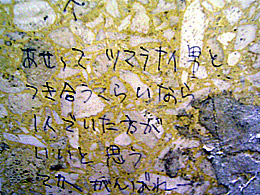 あせって ツマラナイ男と
つき合うくらいなら
1人でいた方が
いいと思う
てか がんばれー